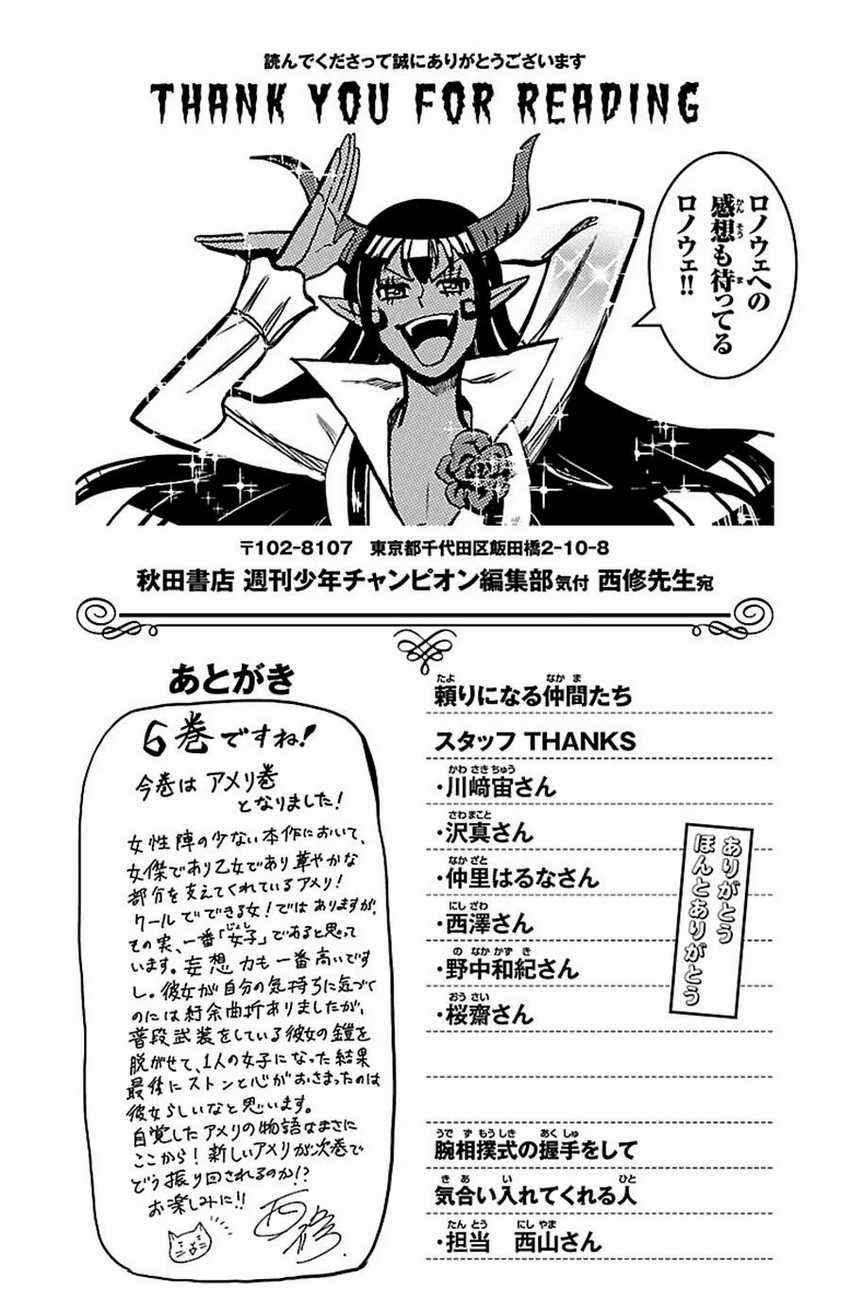 読んでくださって誠にありがとうございます
THANK YOU FOR READING
ロノウェへの
感想も待ってる
ロノウェ!!
〒102-8107 東京都千代田区飯田橋2-10-8
秋田書店 週刊少年チャンピオン編集部気付 西修先生宛
あとがき
6巻ですね!
今巻は アメリ巻
となりました!
女性陣の少ない本作において、
女傑であり乙女であり華やかな
部分を支えてくれているアメリ!
クールでできる女!ではありますが、
その実、一番「女子」であると思って
います。妄想力も一番高いです
し。彼女が自分の気持ちに気づく
のには紆余曲折ありましたが、
普段武装をしている彼女の鎧を
脱がせて、1人の女子になった結果
最後にストンと心がおさまったのは
彼女らしいなと思います。
自覚したアメリの物語はまさに
ここから!新しいアメリが次巻で
どう振り回されるのか!?
お楽しみに!!
西修
頼りになる仲間たち
スタッフ THANKS
・川﨑宙さん
・沢真さん
・仲里はるなさん
・西澤さん
・野中和紀さん
・桜齋さん
ありがとう
ほんとありがとう
腕相撲式の握手をして
気合い入れてくれる人
・担当 西山さん